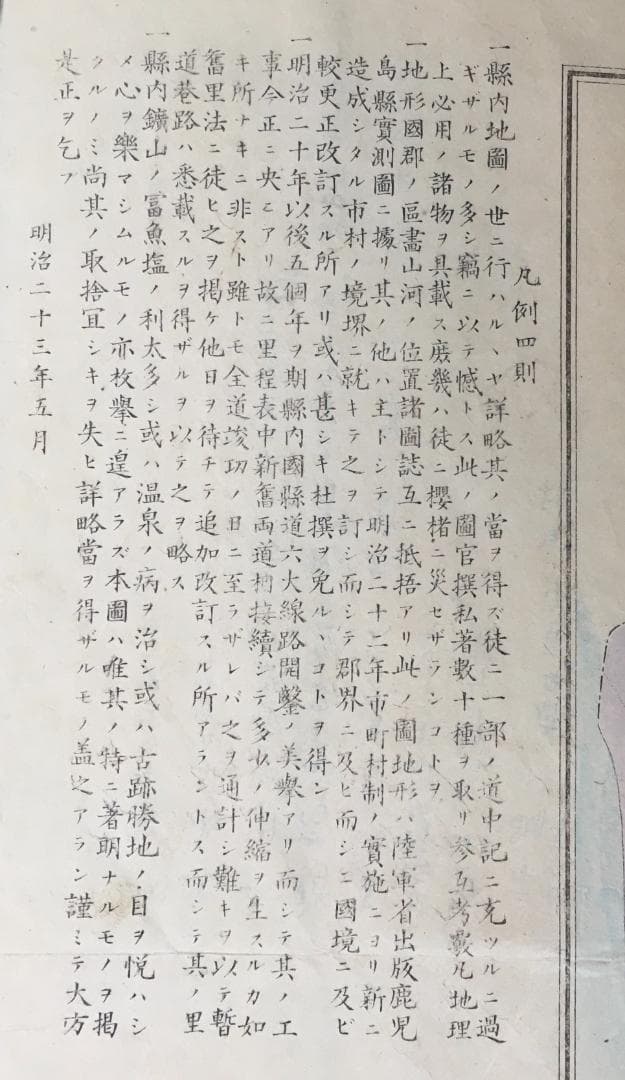 凡例四則
一縣内地圖ノ世ニ行ハルヽヤ詳略其ノ當ヲ得ズ徒ニ一部ノ道中記ニ充ツルニ過
ギザルモノ多シ竊ニ以テ憾トス此ノ圖官撰私著數十種ヲ取リ參互考覈凡地理
上必用ノ諸物ヲ具載ス庶幾ハ徒ニ櫻楮ニ災セザランコトヲ
一地形國郡ノ區畫山河ノ位置諸圖誌互ニ抵捂アリ此ノ圖地形ハ陸軍省出版鹿児
島縣實測圖ニ據リ其ノ他ハ主トシテ明治二十二年市町村制ノ實施ニヨリ新ニ
造成シタル市村ノ境堺ニ就キテ之ヲ訂シ而シテ郡界ニ及ビ而シニ國境ニ及ビ
較更正改訂スル所アリ或ハ甚シキ杜撰ヲ免ルヽコトヲ得ン
一明治二十年以後五個年ヲ期縣内國縣道六大線路開鑿ノ美擧アリ而シテ其ノ工
事今正ニ央ニアリ故ニ里程表中新舊両道相接續シテ多少ノ伸縮ヲ生スルカ如
キ所ナキニ非スト雖トモ全道竣功ノ日ニ至ラザレバ之ヲ通計シ難キヲ以テ暫
舊里法ニ徒ヒ之ヲ掲ケ他日ヲ待チテ追加改訂スル所アラントス而シテ其ノ里
道巷路ハ悉載スルヲ得ザルヲ以テ之ヲ略ス
一縣内鑛山ノ冨魚塩ノ利太多シ或ハ温泉ノ病ヲ治シ或ハ古跡勝地ノ目ヲ悦ハシ
メ心ヲ樂マシムルモノ亦枚擧ニ遑アラズ本圖ハ唯其ノ特ニ著明ナルモノヲ掲
クルノミ尚其ノ取捨宜シキヲ失ヒ詳略當ヲ得ザルモノ盖之アラン謹ミテ大方
是正ヲ乞フ
明治二十三年五月